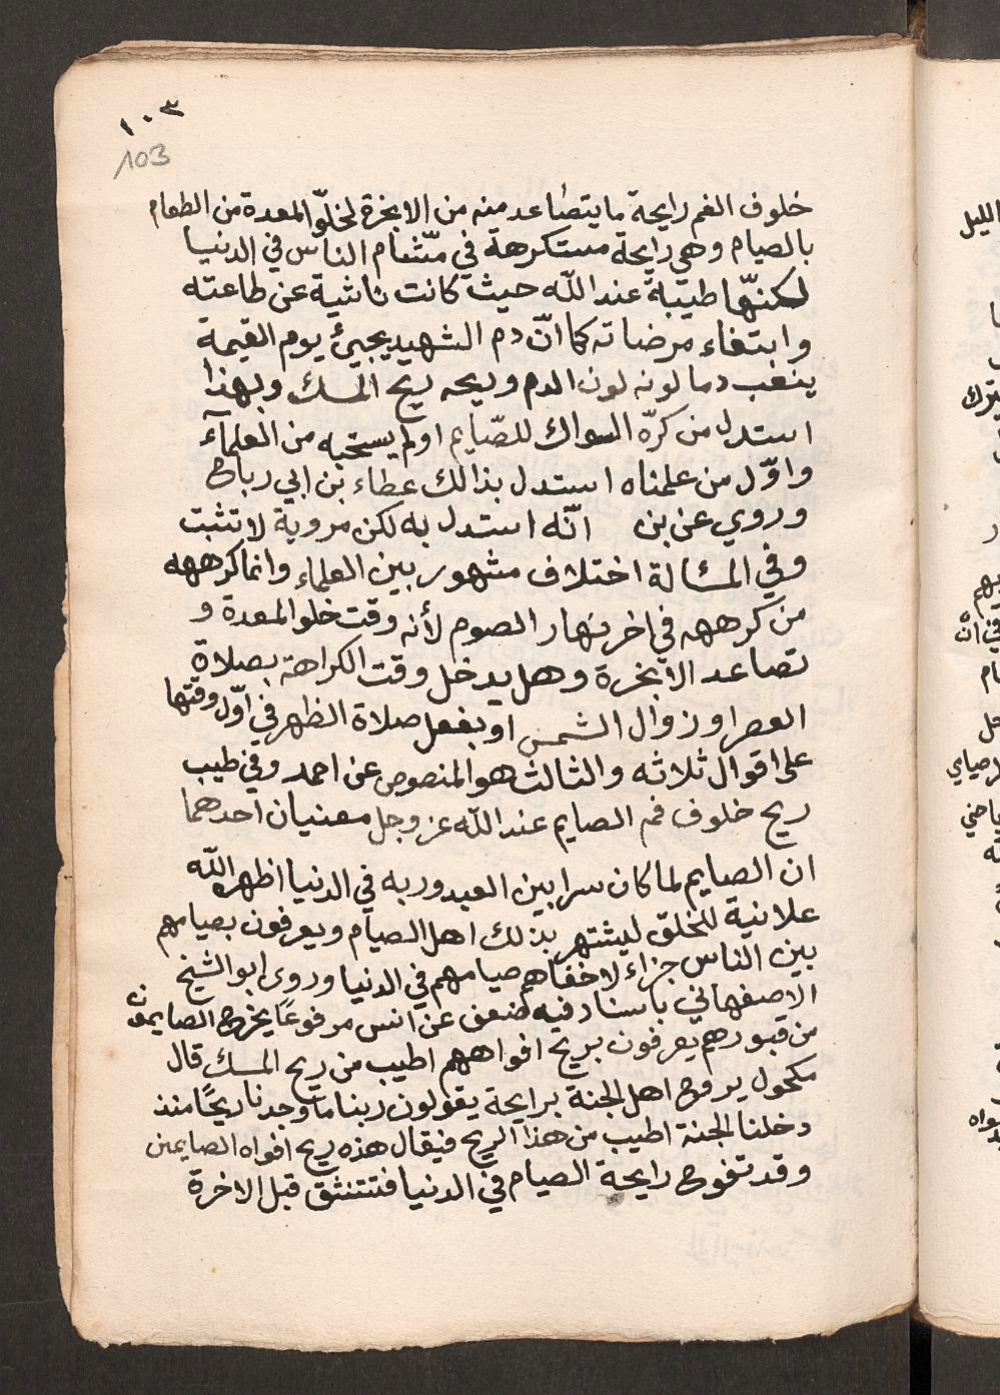 ١٠٣
103
خلوف الفم رايحة ما يتصاعد منه من الابخرة لخلّو المعدة من الطعام
بالصيام وهي رايحة مستكرهة في متنعام الناس في الدنيا
لكنّها طيّبة عند اللّه حيث كانت ناشية عن طاعته
وابتغاء مرضاته كما انّ دم الشهيد يجيئ يوم القيمة
ينغب دما لونه لون الدم وريحه ريح المسك وبهذا
استدل من كرّه السواك للصّايم او لم يستحبه من العلمآء
واوّل من علمناه استدل بذالك عطاء بن ابي رباح
وروي عن بن انّه استدل به لكن مروية لا تثبت
وفي المسالة اختلاف مشهور بين العلماء وانما كرهه
من كرهه في اخر نهار الصوم لأنه وقت خلو المعدة و
تصاعد الابخرة وهل يدخل وقت الكراهة بصلاة
العصر او زوال الشمس او بفعل صلاة الظهر في اوّل وقتها
على اقوال ثلاثه والثالث هو المنصوص عن احمد وفي طيب
ريح خلوف فم الصايم عند اللّه عز وجل معنيان احدهما
ان الصايم لما كان سرا بين العبد وربه في الدنيا اظهره اللّه
علانية للخلق ليشتهر بذلك اهل الصيام ويعرفون بصيامهم
بين الناس جزاء لاخفاهم صيامهم في الدنيا وروى ابو الشيخ
الاصفهاني باسناد فيه ضعف عن انس مرفوعًا يخرج الصايمون
من قبورهم يعرفون بريح افواههم اطيب من ريح المسك قال
مكحول يروح اهل الجنة برايحة يقولون ربنا ما وجدنا ريحًا منذ
دخلنا الجنة اطيب من هذا الريح فيقال هذه ريح افواه الصايمين
وقد تفوح رايحة الصيام في الدنيا فتتنثق قبل الاخرة